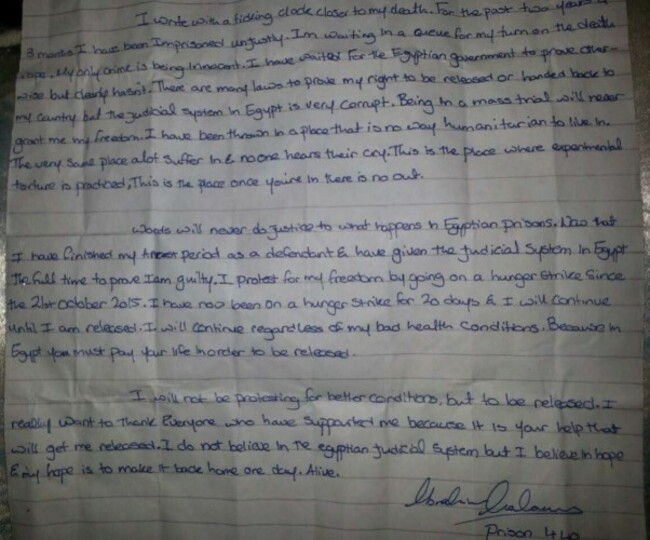 I write with a ticking clock closer to my death. For the past two years &
3 months I have been Imprisoned unjustly. Im waiting in a queue for my turn on the death
rope. My only crime is being innocent. I have waited for the Egyptian government to prove other-
wise but clearly hasn't. There are many laws to prove my right to be released or handed back to
my country but the judicial system in Egypt is very corrupt. Being in a mass trial will never
grant me my freedom. I have been thrown in a place that is no way humanitarian to live in.
The very same place alot suffer in & no one hears their cry. This is the place where experimental
torture is practiced, This is the place once you're in there is no out.
Words will never do justice to what happens in Egyptian prisons. Now that
I have finished my period as a defendant & have given the judicial system in Egypt
the full time to prove I am guilty. I protest for my freedom by going on a hunger strike since
the 21st October 2015. I have now been on a hunger strike for 20 days & I will continue
until I am released. I will continue regardless of my bad health conditions. Because in
Egypt you must pay your life in order to be released.
I will not be protesting for better conditions, but to be released. I
really want to thank everyone who have supported me because it is your help that
will get me released. I do not believe in the egyptian judicial system but I believe in hope
& my hope is to make it back home one day. Alive.
Prison 440